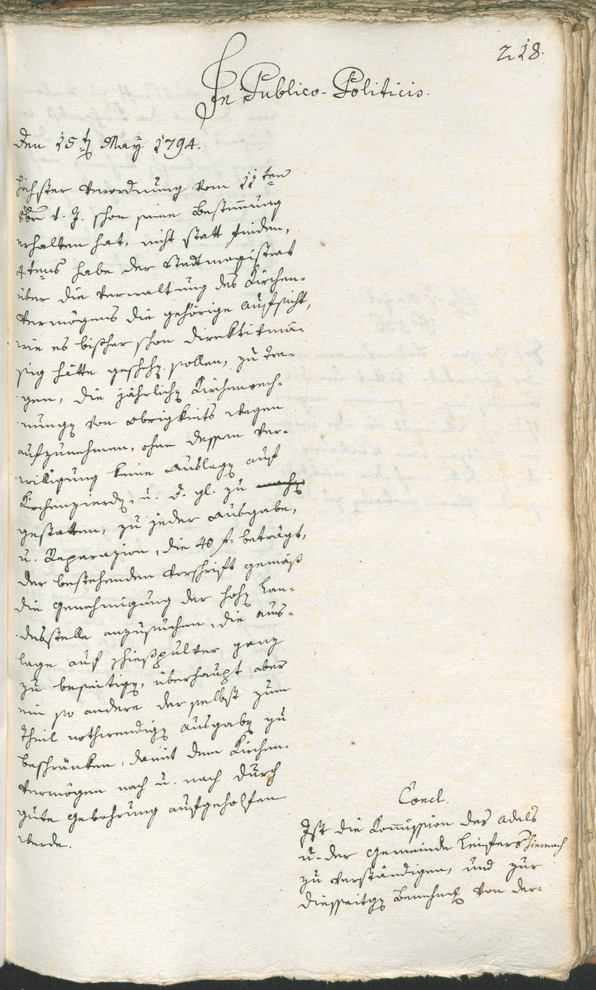 218.
In Publico-Politicis.
den 15t May 1794.
höchster Verordnung vom 11ten
9br v. J. schon seine Bestimmung
erhalten hat, nicht statt finden,
4tens habe der Stadtmagistrat
über die Verwaltung des Kirchen-
vermögens die gehörige Aufsicht,
wie es bißher schon direktivmä-
sig hätte geschehen sollen, zu tra-
gen, die jährliche Kirchenrech-
nungen von Obrigkeits wegen
aufzunehmen, ohne dessen Ver-
willigung keine Auslagen auf
Kirchenzierden, u. d. gl. zu
gestatten, zu jeder Ausgabe,
u. Reparazion, die 40 f. beträgt,
der bestehenden Vorschrift gemäß
die Genehmigung der hohen Lan-
desstelle anzusuchen, die Aus-
lage auf Schießpulver ganz
zu beseitigen, überhaupt aber
ein so andere derselbst zum
Theil nothwendige Ausgaben zu
beschränken, damit dem Kirchen-
vermögen nach u. nach durch
gute Gebahrung aufgeholfen
werde.
Concl.
Ist die Kommission des Adels
u. der Gemeinde Leifers hiernach
zu verständigen, und zur
diesseitigen Benehmen von der-